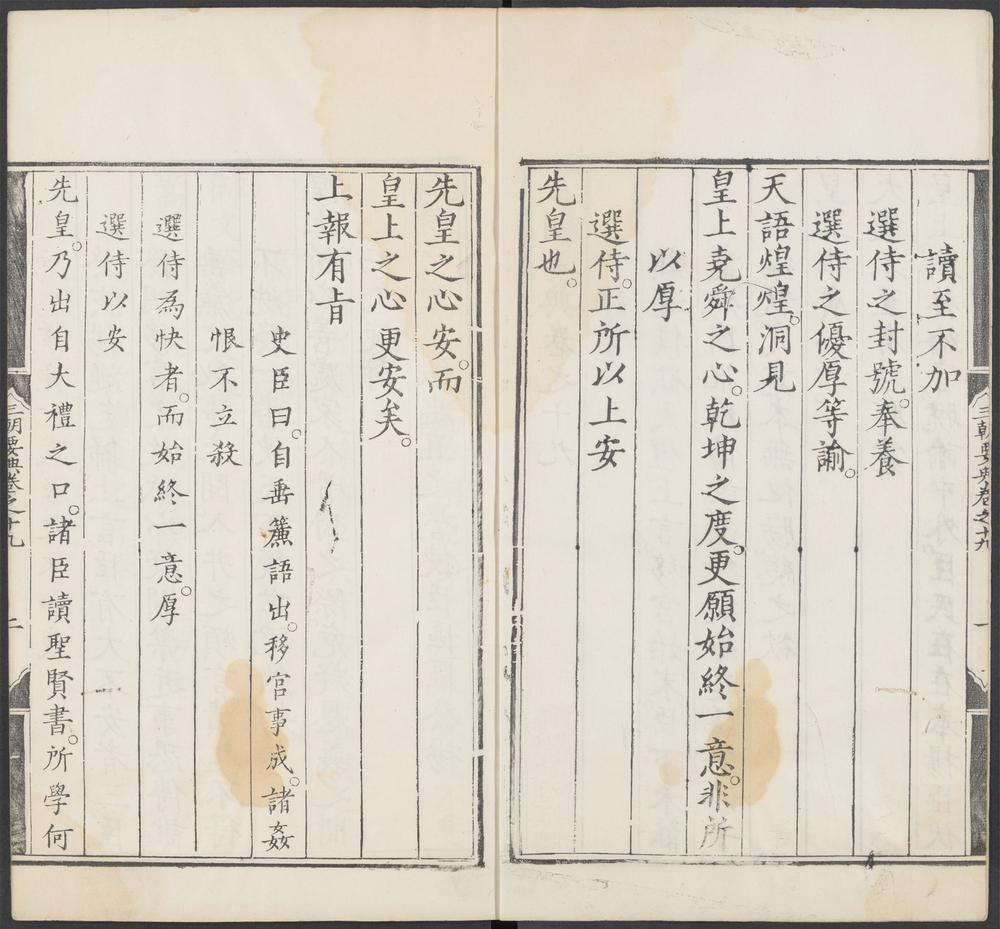 讀至不加
選侍之封號。奉養
選侍之優厚等諭。
天語煌煌。洞見
皇上堯舜之心。乾坤之度。更願始終一意。非所
以厚
選侍。正所以上安
先皇也。
三朝要典卷之十九
一
先皇之心安。而
皇上之心更安矣。
上報有旨
史臣曰。自垂簾語出。移宮事成。諸姦
恨不立殺
選侍為快者。而始終一意。厚
選侍以安
先皇。乃出自大禮之口。諸臣讀聖賢書。所學何
三朝要典卷之十九
二